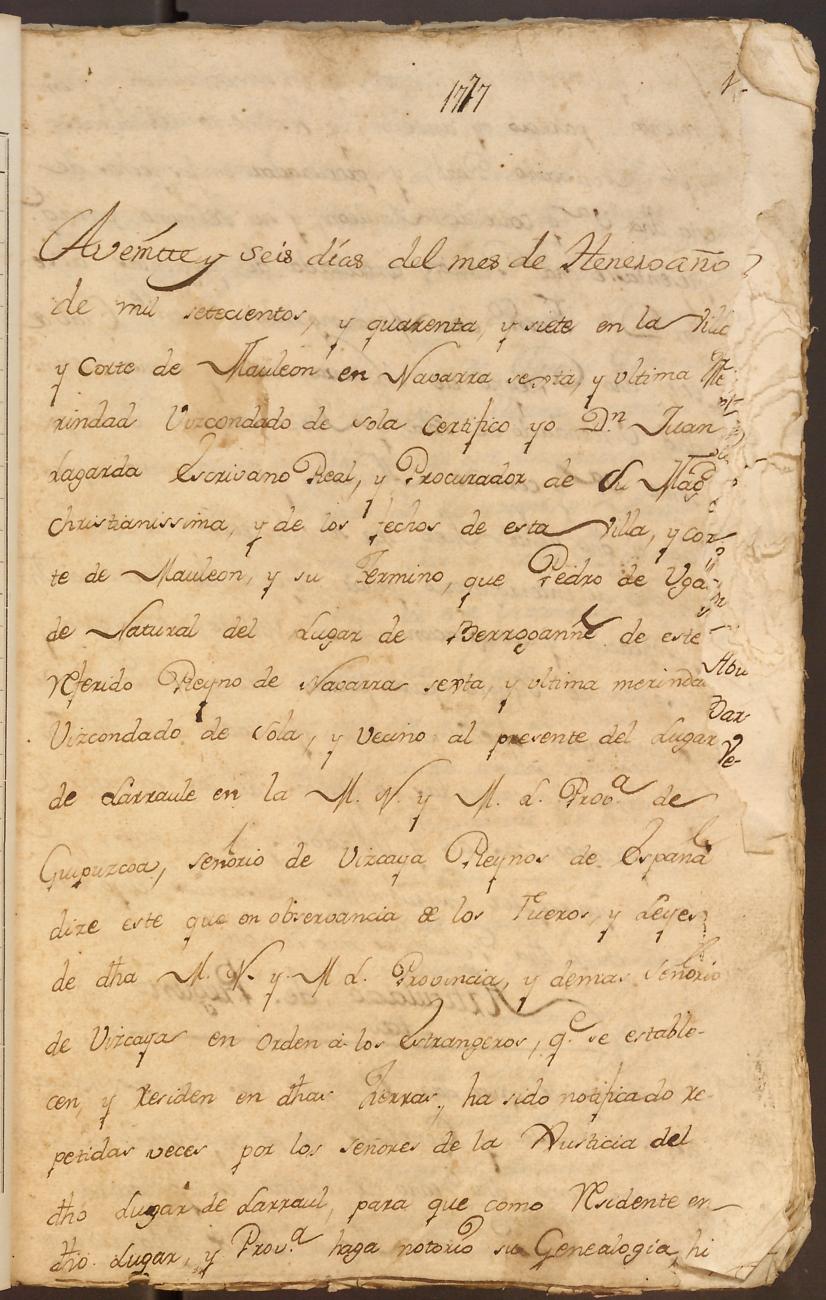 1777
1.
A veintte y seis días del mes de Henero año
de mil setecientos, y quarenta, y siete en la Villa
y Corte de Mauleon en Navarra sexta, y ultima Me
rindad Vizcondado de sola Certifico yo Dn Juan
Lagarda Escrivano Real, y Procurador de Su Magd
christianissima, y de los fechos de esta Villa, y cor
te de Mauleon, y su Termino, que Pedro de Uga
de Natural del Lugar de Berrogoanne de este
Referido Reyno de Navarra sexta, y ultima merinda
Vizcondado de Sola, y Vecino al presente del Lugar
de Larraule en la M. N. y M. L. Prova de
Guipuzcoa, señorio de Vizcaya Reynos de España
dize este que en observancia de los Fueros, y Leyes
de dha M. N. y M L. Provincia, y demas señorio
de Vizcaya en Orden a los Estrangeros, qe se estable-
cen, y Residen en dhas Tierras, ha sido notificado re-
petidas veces por los señores de la Justicia del
dho Lugar de Larraul, para que como Residente en
dho Lugar, y Prova haga notorio su Genealogia, hi